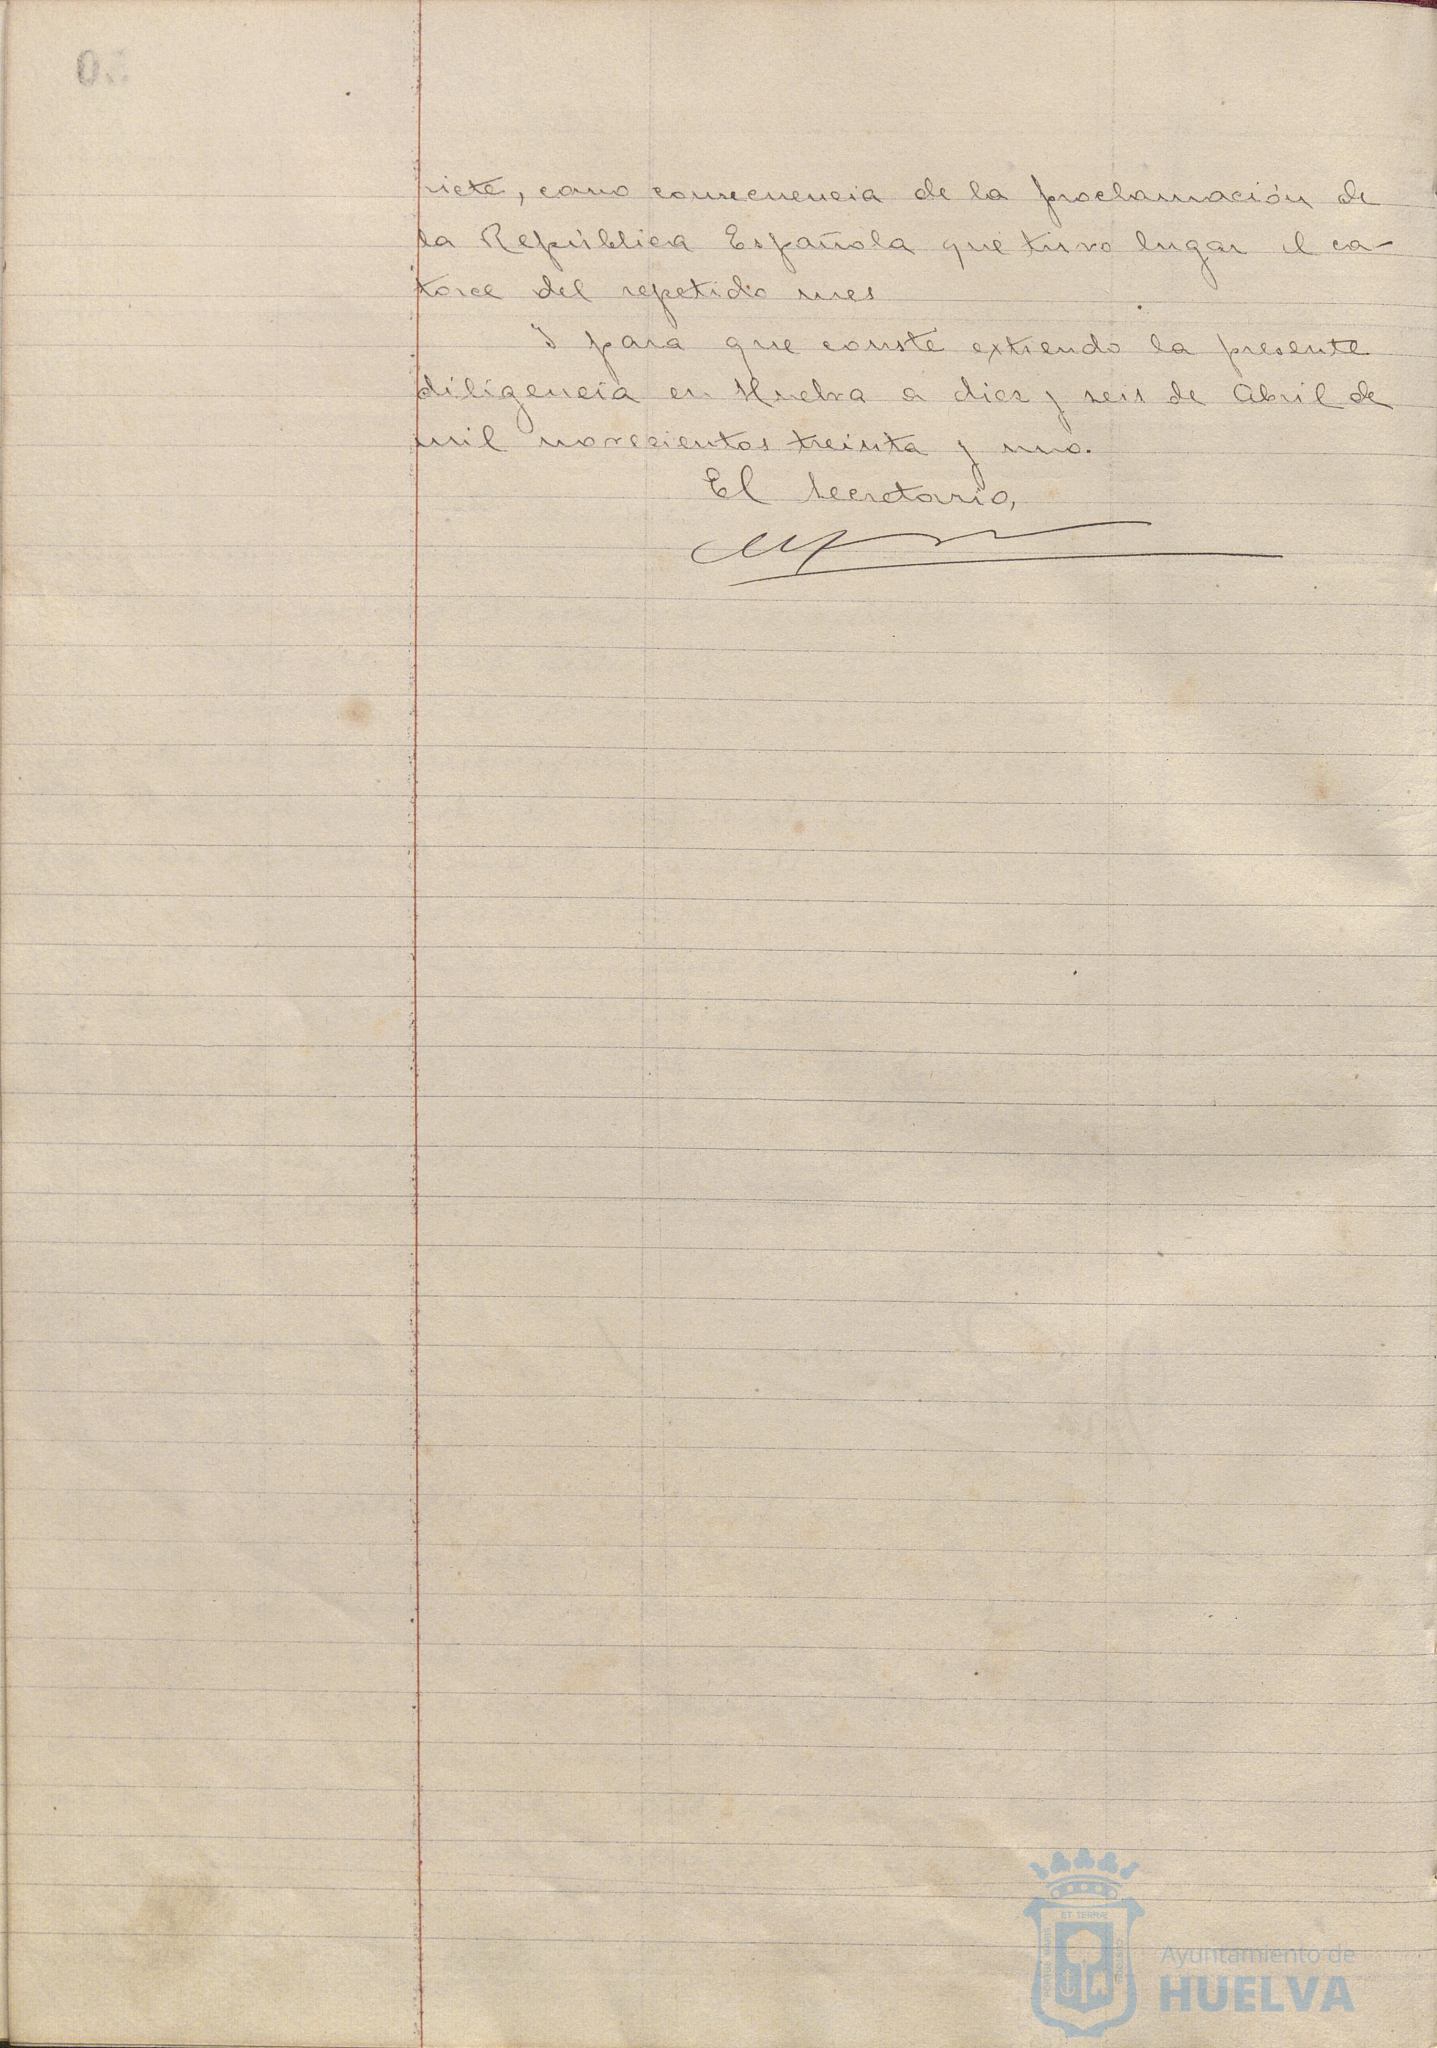 siete, como consecuencia de la proclamación de
la República Española que tuvo lugar el ca-
torce del repetido mes
Y para que conste extiendo la presente
diligencia en Huelva a diez y seis de Abril de
mil novecientos treinta y uno.
El Secretario,
ET TERRÆ
Ayuntamiento de
HUELVA